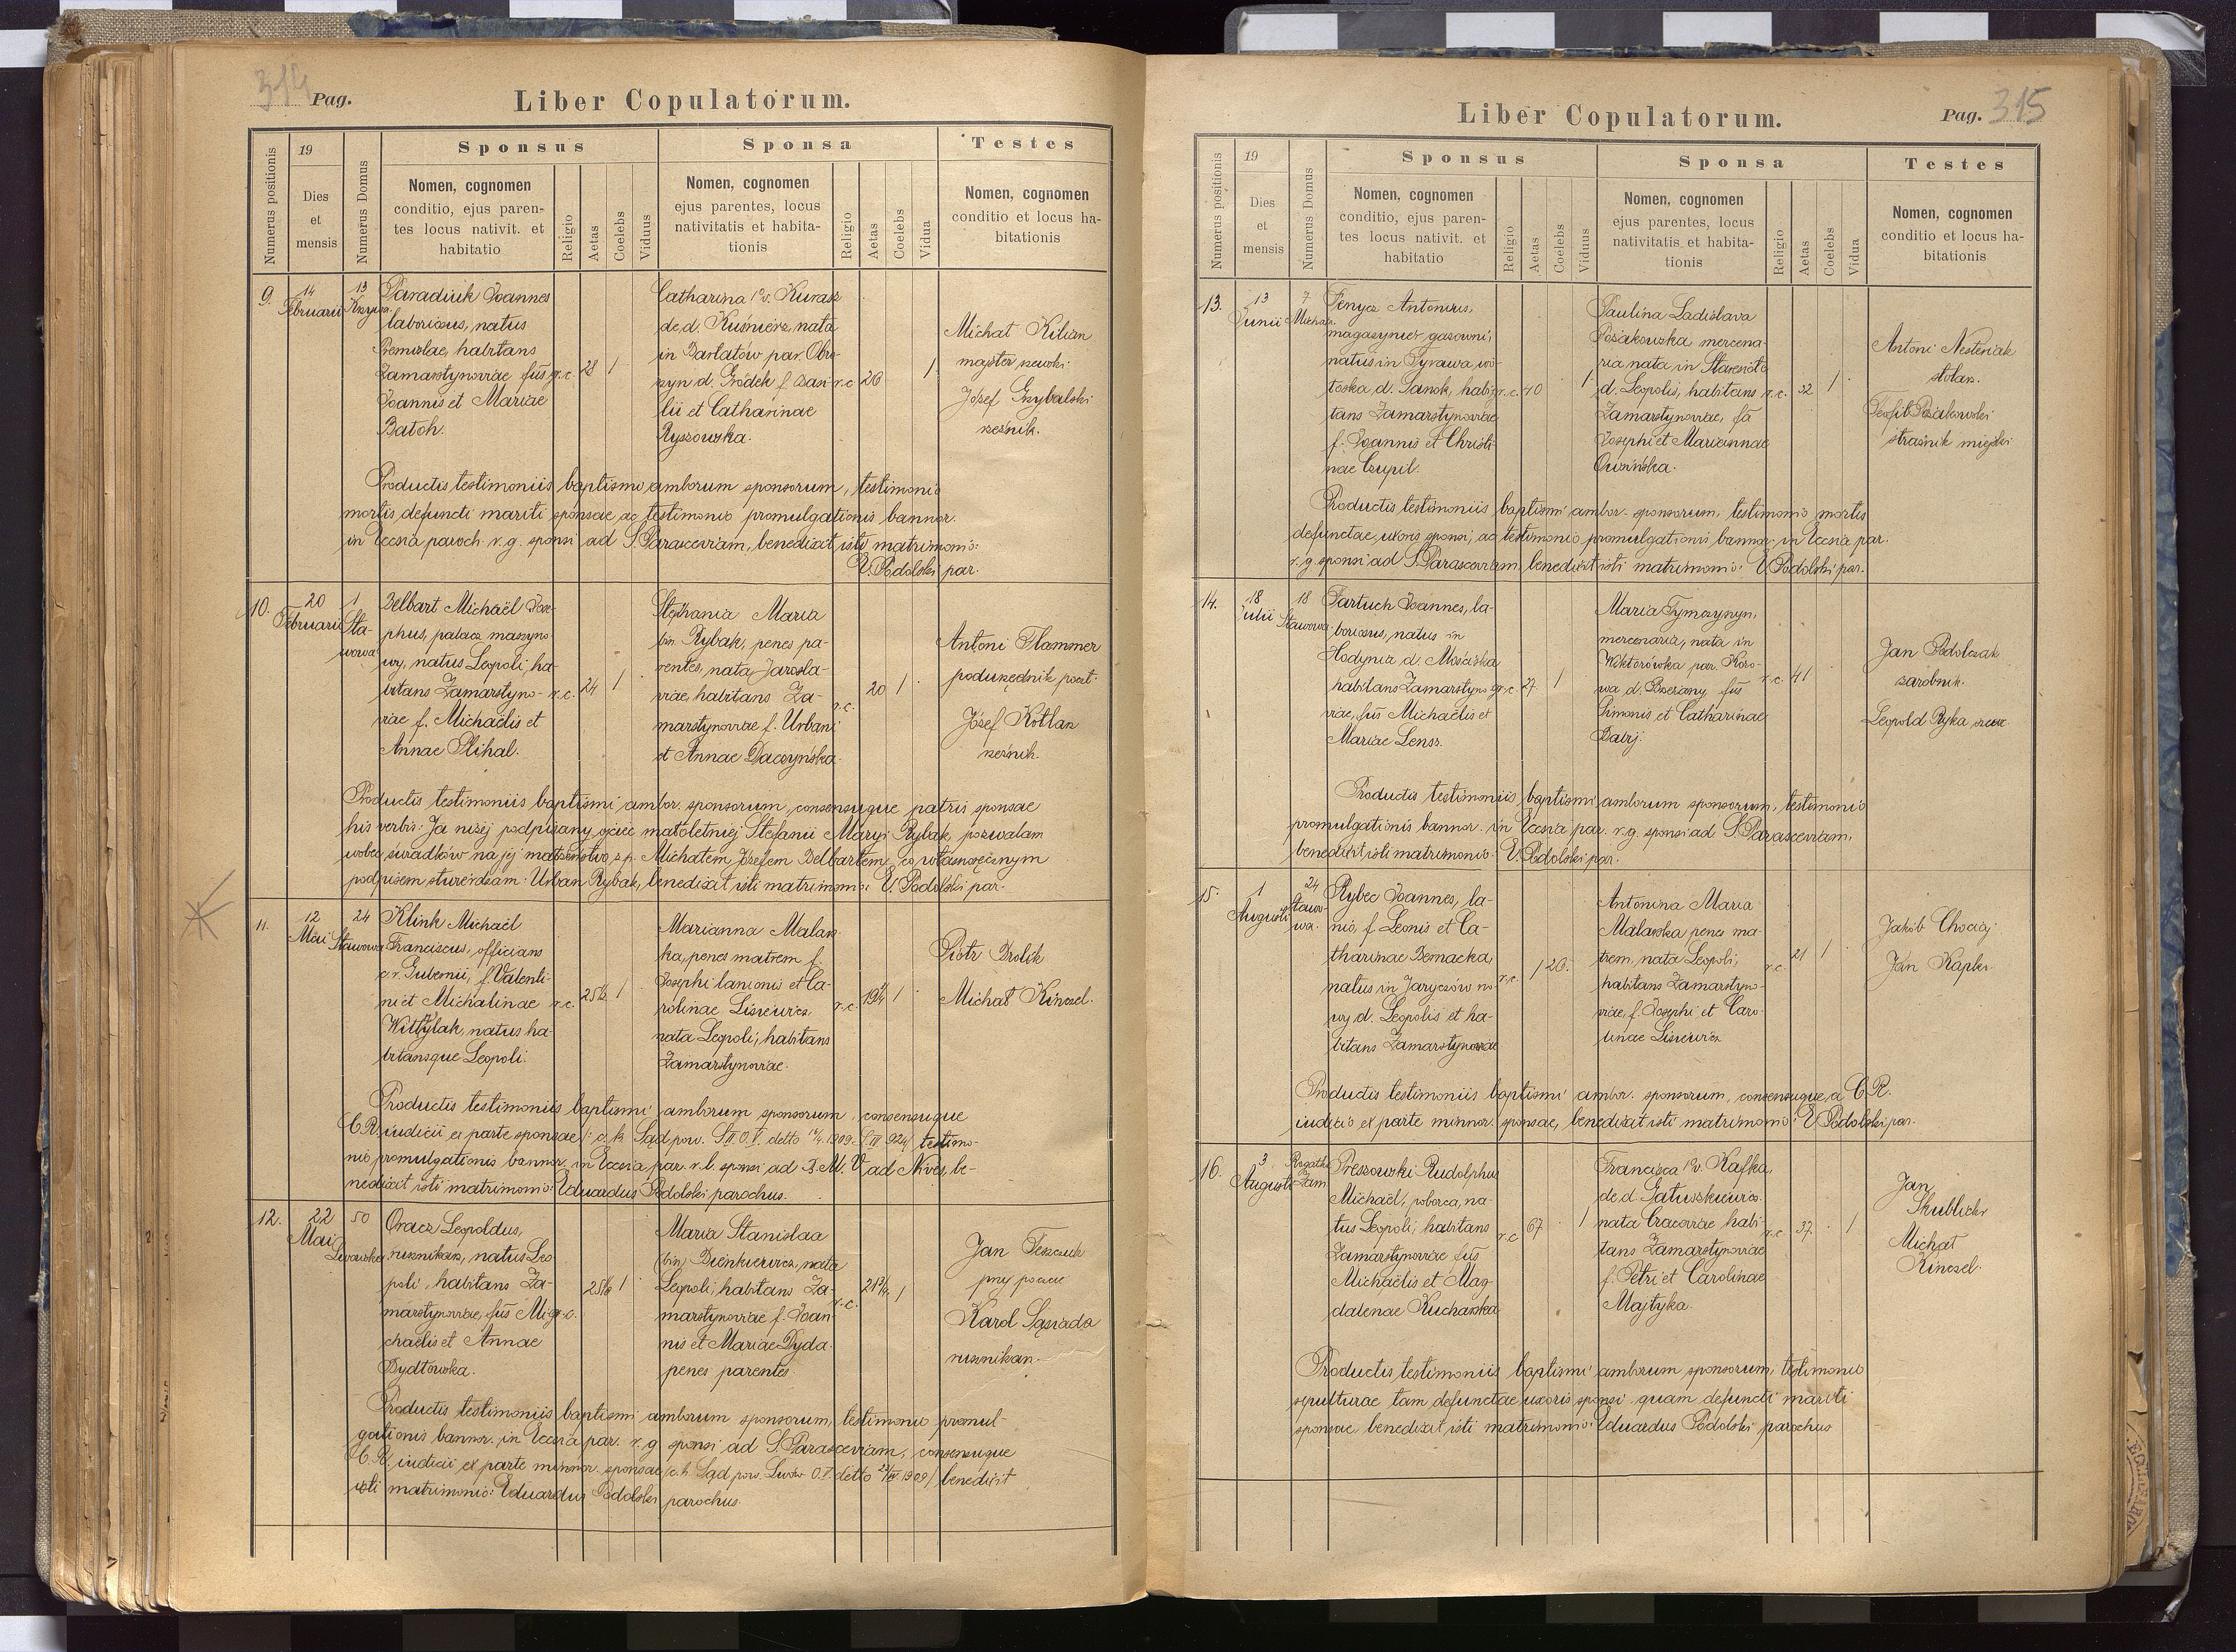 314 Pag.
Liber Copulatorum.
Numerus positionis
19
Dies
et
mensis
Numerus Domus
Sponsus
Nomen, cognomen
conditio, ejus paren-
tes locus nativit. et
habitatio
Religio
Aetas
Coelebs
Viduus
Sponsa
Nomen, cognomen
ejus parentes, locus
nativitatis et habita-
tionis
Religio
Aetas
Coelebs
Vidua
Testes
Nomen, cognomen
conditio et locus ha-
bitationis
9.
14
Februarii
13
Paraduik Joannes
laboriosus, natus
Premislae, habitans
Zamarstynoviae fus
Joannis et Mariae
Batoh.
gr.c.
28
1
Catharina 1o v. Kurasz
de d. Kuśnierz, nata
in Bartatów par. Obro-
szyn d. Gródek f. Basi-
lii et Catharinae
Ryszowska.
r.c.
26
1
Michał Kilian
majster szewski
Józef Grzybalski
rzeźnik.
Productis testimoniis baptismi amborum sponsorum, testimonio
mortis defuncti mariti sponsae ac testimonio promulgationis bannor.
in Eccsia paroch. r.g. sponsi ad S. Parasceviam, benedixit isti matrimonio:
E. Podolski par.
10.
20
Februarii
1
Sta-
wowa
Delbart Michaël Jose-
phus, palacz maszyno
wy, natus Leopoli, ha-
bitans Zamarstyno-
viae f. Michaëlis et
Annae Plihal.
r.c.
24
1
Stephania Maria
bin. Rybak, penes pa-
rentes, nata Jarosla-
viae, habitans Za-
marstynoviae f. Urbani
et Annae Daczyńska.
r.c.
20
1
Antoni Flammer
podurzędnik poczt.
Józef Kotlarz
rzeźnik.
Productis testimoniis baptismi ambor. sponsorum, consensuque patris sponsae
his verbis: Ja niżej podpisany ojciec małoletniej Stefanii Maryi Rybak pozwalam
wobec świadków na jej małżeństwo z p. Michałem Józefem Delbartem, co własnoręcznym
podpisem stwierdzam: Urban Rybak, benedixit isti matrimonio: E. Podolski par.
11.
12
Mai
24
Stawowa
Klink Michaël
Franciscus, officians
c.r. Gubernii, f. Valenti-
ni et Michalinae
Wittylak, natus ha-
bitansque Leopoli.
r.c.
25½
1
Marianna Malars
ka, penes matrem f.
Josephi lanionis et Ca-
rolinae Lisiewicz
nata Leopoli, habitans
Zamarstynoviae.
r.c.
1
Piotr Drolik
Michał Kinczel.
Productis testimoniis baptismi amborum sponsorum, consensuque
C.R. iudicii ex parte sponsae /: c.k. Sąd pow. S.II. O.V. detto 1909. testimo-
nio promulgationis bannor. in Eccsia par. r.l. sponsi ad B.M.V. ad Nives, be-
nedixit isti matrimonio: Eduardus Podolski parochus.
12.
22
Mai
50
Lwowska
Oracz Leopoldus,
rusznikarz, natus Leo
poli, habitans Za-
marstynoviae, fus Mi-
chaëlis et Annae
Dydłowska.
gr.c.
1
Maria Stanislaa
(bin) Dienkiewicz, nata
Leopoli, habitans Za-
marstynoviae f. Joan-
nis et Mariae Dyda.
penes parentes
r.c.
1
Jan Teszczuk
przy poczcie
Karol Sąsiada
rusznikarz.
Productis testimoniis baptismi amborum sponsorum, testimonio promul-
gationis bannor. in Eccsia par. r.g. sponsi ad S. Parasceviam, consensuque
C.R. iudicii ex parte minnor. sponsae /c.k. Sąd pow. Lwów O.V. detto 1909/ benedixit
isti matrimonio: Eduardus Podolski parochus.
Liber Copulatorum.
Pag. 315
Numerus positionis
19
Dies
et
mensis
Numerus Domus
Sponsus
Nomen, cognomen
conditio, ejus paren-
tes locus nativit. et
habitatio
Religio
Aetas
Coelebs
Viduus
Sponsa
Nomen, cognomen
ejus parentes, locus
nativitatis et habita-
tionis
Religio
Aetas
Coelebs
Vidua
Testes
Nomen, cognomen
conditio et locus ha-
bitationis
13.
13
Junii
7
Fenycz Antonius,
magazynier gazowni,
natus in Tyrawa wo-
łoska d. Sanok, habi-
tans Zamarstynoviae
f. Joannis et Christi-
nae Czupil.
gr.c.
40
1
Paulina Ladislava
Posiakowska mercena-
ria nata in Staresioło
d. Leopolis, habitans
Zamarstynoviae, fa
Josephi et Mariannae
Owsińska.
r.c.
32
1
Antoni Nesteriak
stolarz.
Teofil Posiakowski
strażnik miejski
Productis testimoniis baptismi ambor. sponsorum, testimonio mortis
defunctae uxoris sponsi, ac testimonio promulgationis bannor. in Eccsia par.
r.g. sponsi ad S. Parasceviam, benedixit isti matrimonio: E. Podolski par.
14.
18
Julii
18
Stawowa
Fartuch Joannes, la-
boriosus, natus in
Hodynia d. Mościska
habitans Zamarstyno
viae, fus Michaëlis et
Mariae Lensz.
gr.c.
27
1
Maria Tymczyszyn,
mercenaria, nata in
Wiktorówka par. Koro-
wa d. Brzeżany, fus
Simonis et Catharinae
Babij.
r.c.
41
Jan Podolczak
zarobnik.
Leopold Ryka szewc
Productis testimoniis baptismi amborum sponsorum, testimonio
promulgationis bannor. in Eccsia par. r.g. sponsi ad S. Parasceviam,
benedixit isti matrimonio: E. Podolski par.
15.
1
Augusti
24
Stawo-
wa.
Rybec Joannes, la-
nio, f. Leonis et Ca-
tharinae Bernacka,
natus in Jaryczów no-
wy d. Leopolis et ha-
bitans Zamarstynoviae
r.c.
1 26.
Antonina Maria
Malarska penes ma-
trem, nata Leopoli,
habitans Zamarstyno-
viae, f. Josephi et Caro-
linae Lisiewicz
r.c.
21
1
Jakób Chocaj
Jan Kapko
Productis testimoniis baptismi ambor. sponsorum, consensuque a C.R.
iudicio ex parte minnor. sponsae, benedixit isti matrimonio: E. Podolski par.
16.
3
Augusti
Rogatka
Zam.
Preszowski Rudolphus
Michaël, poborca, na-
tus Leopoli, habitans
Zamarstynoviae fus
Michaëlis et Mag-
dalenae Kucharska
r.c.
67
1
Francisca 1o v. Kafka,
de d. Gatuszkiewicz.
nata Cracoviae habi-
tans Zamarstynoviae
f. Petri et Carolinae
Majtyka.
r.c.
37.
1
Jan
Skublicki
Michał
Kinczel.
Productis testimoniis baptismi amborum sponsorum, testimonio
sepulturae tam defunctae uxoris sponsi quam defuncti mariti
sponsae benedixit isti matrimonio: Eduardus Podolski parochus